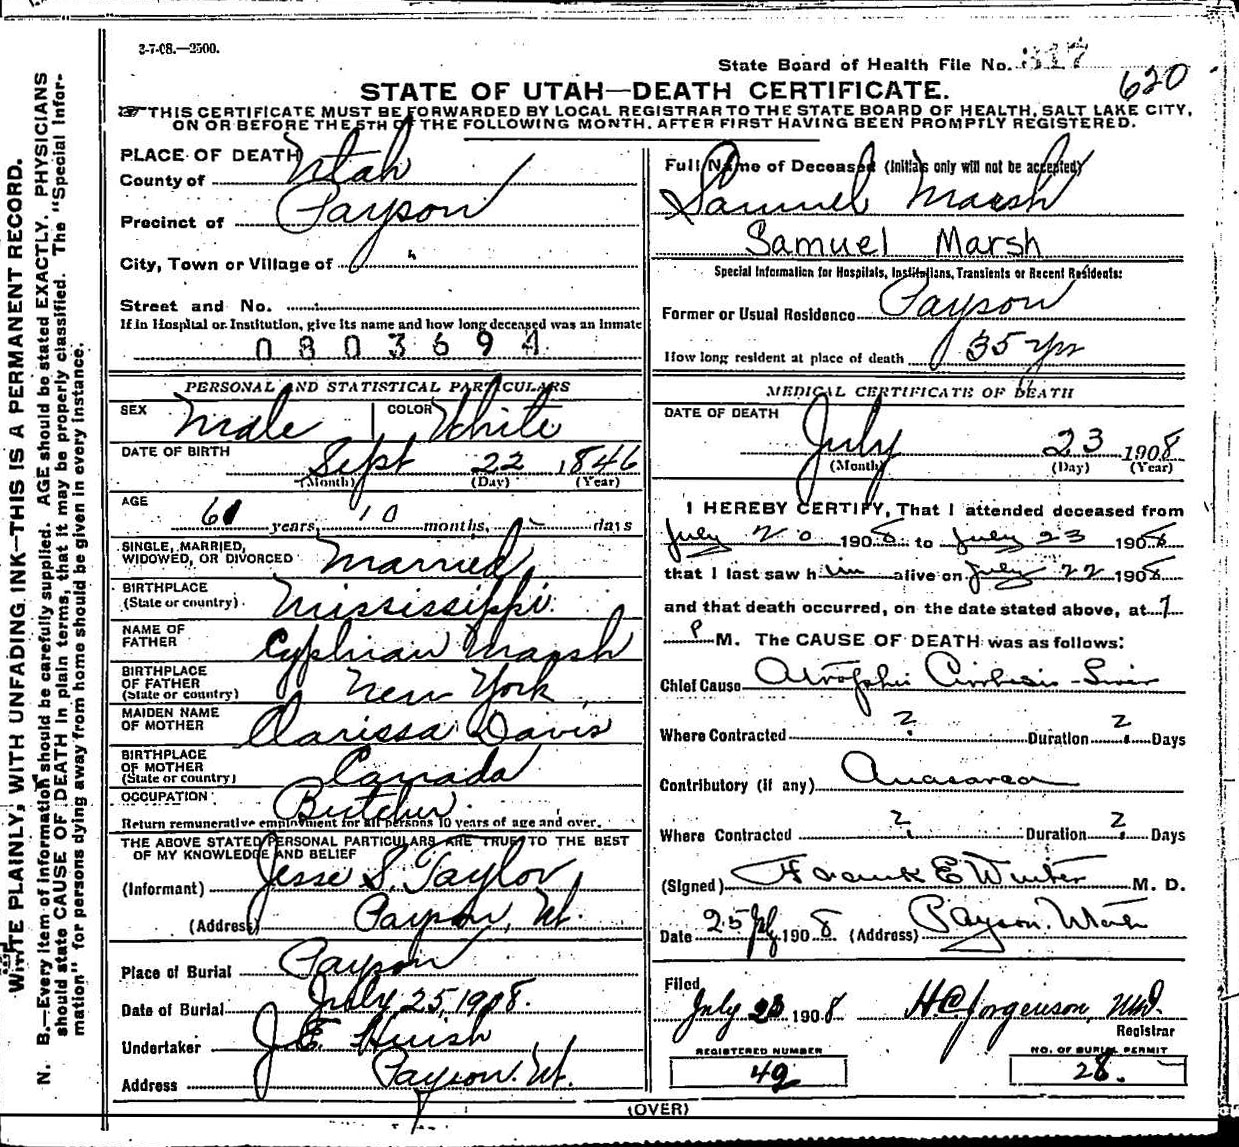 3-7-08.—2500.
State Board of Health File No. 317
620
STATE OF UTAH—DEATH CERTIFICATE.
THIS CERTIFICATE MUST BE FORWARDED BY LOCAL REGISTRAR TO THE STATE BOARD OF HEALTH, SALT LAKE CITY,
ON OR BEFORE THE 5TH OF THE FOLLOWING MONTH, AFTER FIRST HAVING BEEN PROMPTLY REGISTERED.
WRITE PLAINLY, WITH UNFADING INK—THIS IS A PERMANENT RECORD.
N. B.—Every item of information should be carefully supplied. AGE should be stated EXACTLY. PHYSICIANS
should state CAUSE OF DEATH in plain terms, that it may be properly classified. The "Special Infor-
mation" for persons dying away from home should be given in every instance.
PLACE OF DEATH
County of Utah
Precinct of Payson
City, Town or Village of "
Street and No.
If in Hospital or Institution, give its name and how long deceased was an inmate
0803694
PERSONAL AND STATISTICAL PARTICULARS
SEX Male COLOR White
DATE OF BIRTH Sept 22 1846
(Month) (Day) (Year)
AGE 61 years, 10 months, - days
SINGLE, MARRIED,
WIDOWED, OR DIVORCED Married
BIRTHPLACE
(State or country) Mississippi
NAME OF
FATHER Cyphrian Marsh
BIRTHPLACE
OF FATHER
(State or country) New York
MAIDEN NAME
OF MOTHER Clarissa Davis
BIRTHPLACE
OF MOTHER
(State or country) Canada
OCCUPATION Butcher
Return remunerative employment for all persons 10 years of age and over.
THE ABOVE STATED PERSONAL PARTICULARS ARE TRUE TO THE BEST
OF MY KNOWLEDGE AND BELIEF
(Informant) Jesse S. Taylor
(Address) Payson, Ut.
Place of Burial Payson
Date of Burial July 25, 1908.
Undertaker J. E. Huish
Address Payson. Ut.
Full Name of Deceased (Initials only will not be accepted)
Samuel Marsh
Samuel Marsh
Special Information for Hospitals, Institutions, Transients or Recent Residents:
Former or Usual Residence Payson
How long resident at place of death 35 yrs
MEDICAL CERTIFICATE OF DEATH
DATE OF DEATH
July 23 1908
(Month) (Day) (Year)
I HEREBY CERTIFY, That I attended deceased from
July 20 1908 to July 23 1908
that I last saw him alive on July 22 1908
and that death occurred, on the date stated above, at 7
P M. The CAUSE OF DEATH was as follows:
Chief Cause Atrophic Cirrhosis - Liver
Where Contracted ? Duration ? Days
Contributory (if any) Anasarca
Where Contracted ? Duration ? Days
(Signed) Frank E Winter M. D.
Date 25 July 1908 (Address) Payson. Utah
Filed
July 23 1908 H C Jorgenson, MD.
Registrar
REGISTERED NUMBER
49
NO. OF BURIAL PERMIT
28.
(OVER)